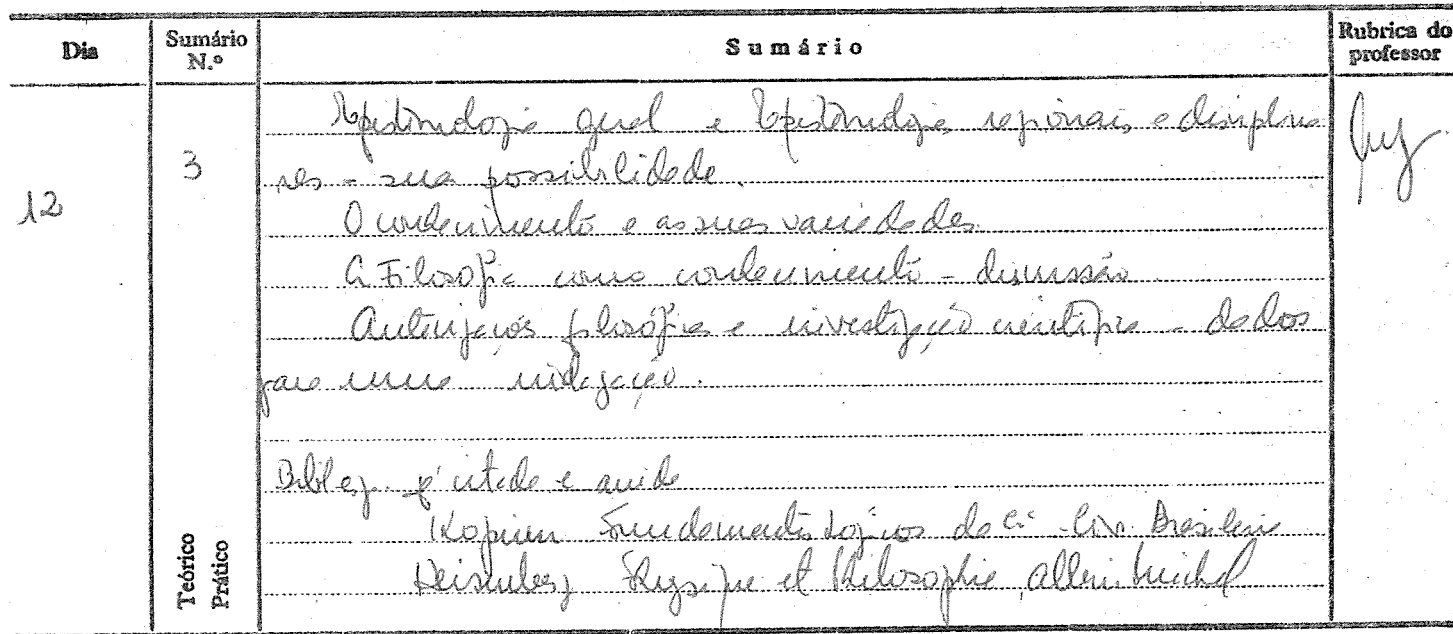 Dia
Sumário N.º
Sumário
Rubrica do professor
12
3
Epistemologia geral e Epistemologias regionais e disciplina
res - sua possibilidade.
O conhecimento e as suas variedades.
A Filosofia como conhecimento - discussão.
filosófica e investigação científica - dados
para uma indagação.
Bibliog. já citada e ainda
Kopnin Fundamentos Lógicos da Ci. - Civ. Brasileira
Heisenberg, Physique et Philosophie, Albin Michel
Teórico
Prático